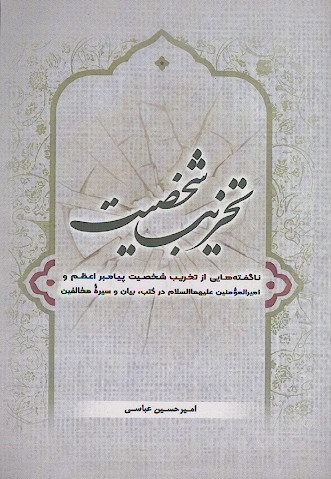 تخریب شخصیت
ناگفته‌هایی از تخریب شخصیت پیامبر اعظم و
امیرالمؤمنین علیهماالسلام در کتب، بیان و سیرهٔ مخالفین
امیرحسین عباسی